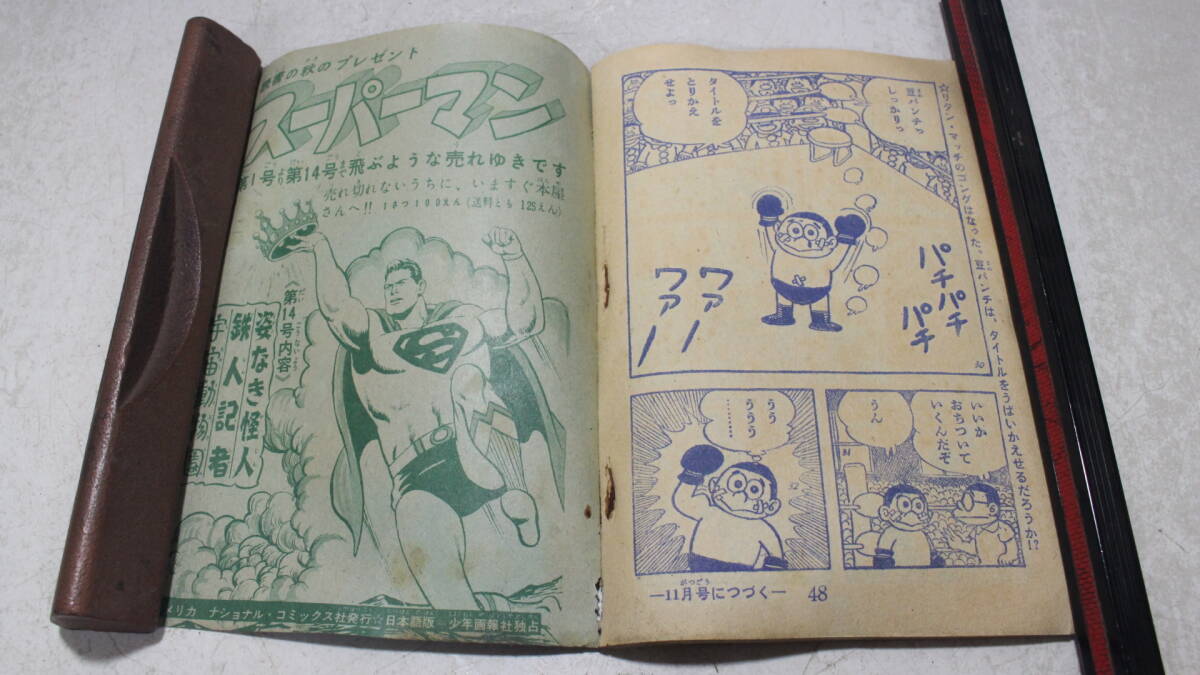 の秋のプレゼント
スーパーマン
第1号より第14号まで飛ぶような売れゆきです
売れ切れないうちに、いますぐ本屋
さんへ!! 1さつ100えん(送料とも125えん)
《第14号内容》
姿なき怪人
鉄人記者
宇宙動物園
メリカ ナショナル・コミックス社発行☆日本語版 少年画報社独占
☆リタン・マッチのゴングはなった。豆パンチは、タイトルをうばいかえせるだろうか!?
豆パンチっ
しっかりっ
タイトルを
とりかえ
せよっ
パチパチ
パチ
ワァーワァー
30
いいか
おちついて
いくんだぞ
うん
31
うう
ううう
………
32
―11月号につづく―
48